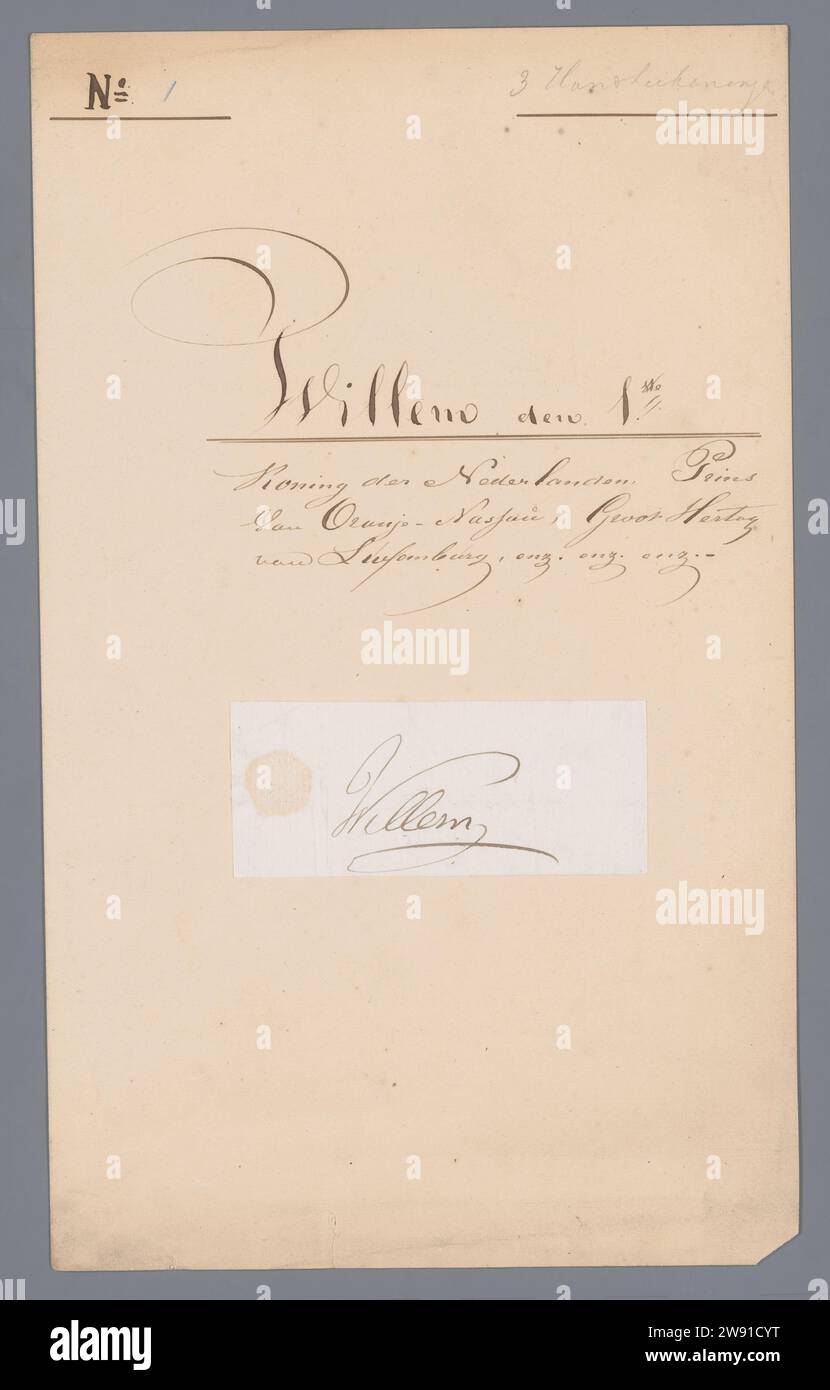 No 1
3 Handteekeningen
Willem den 1ste
Koning der Nederlanden, Prins
van Oranje-Nassau, Groot Hertog
van Luxemburg, enz. enz. enz.-
Willem
alamy
Image ID: 2W91CYT
www.alamy.com